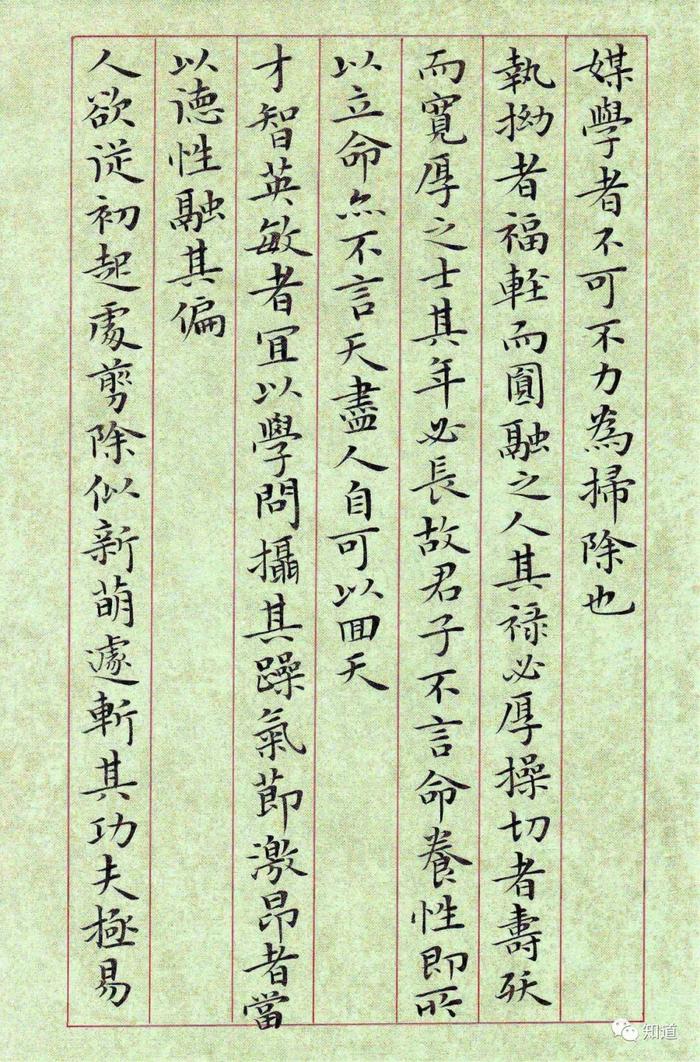 媒學者不可不力為掃除也
執拗者福輊而圓融之人其祿必厚操切者壽殀
而寬厚之士其年必長故君子不言命養性即所
以立命亦不言天盡人自可以回天
才智英敏者宜以學問攝其躁氣節激昂者當
以德性融其偏
人欲從初起處剪除似新萌遽斬其功夫極易
知道